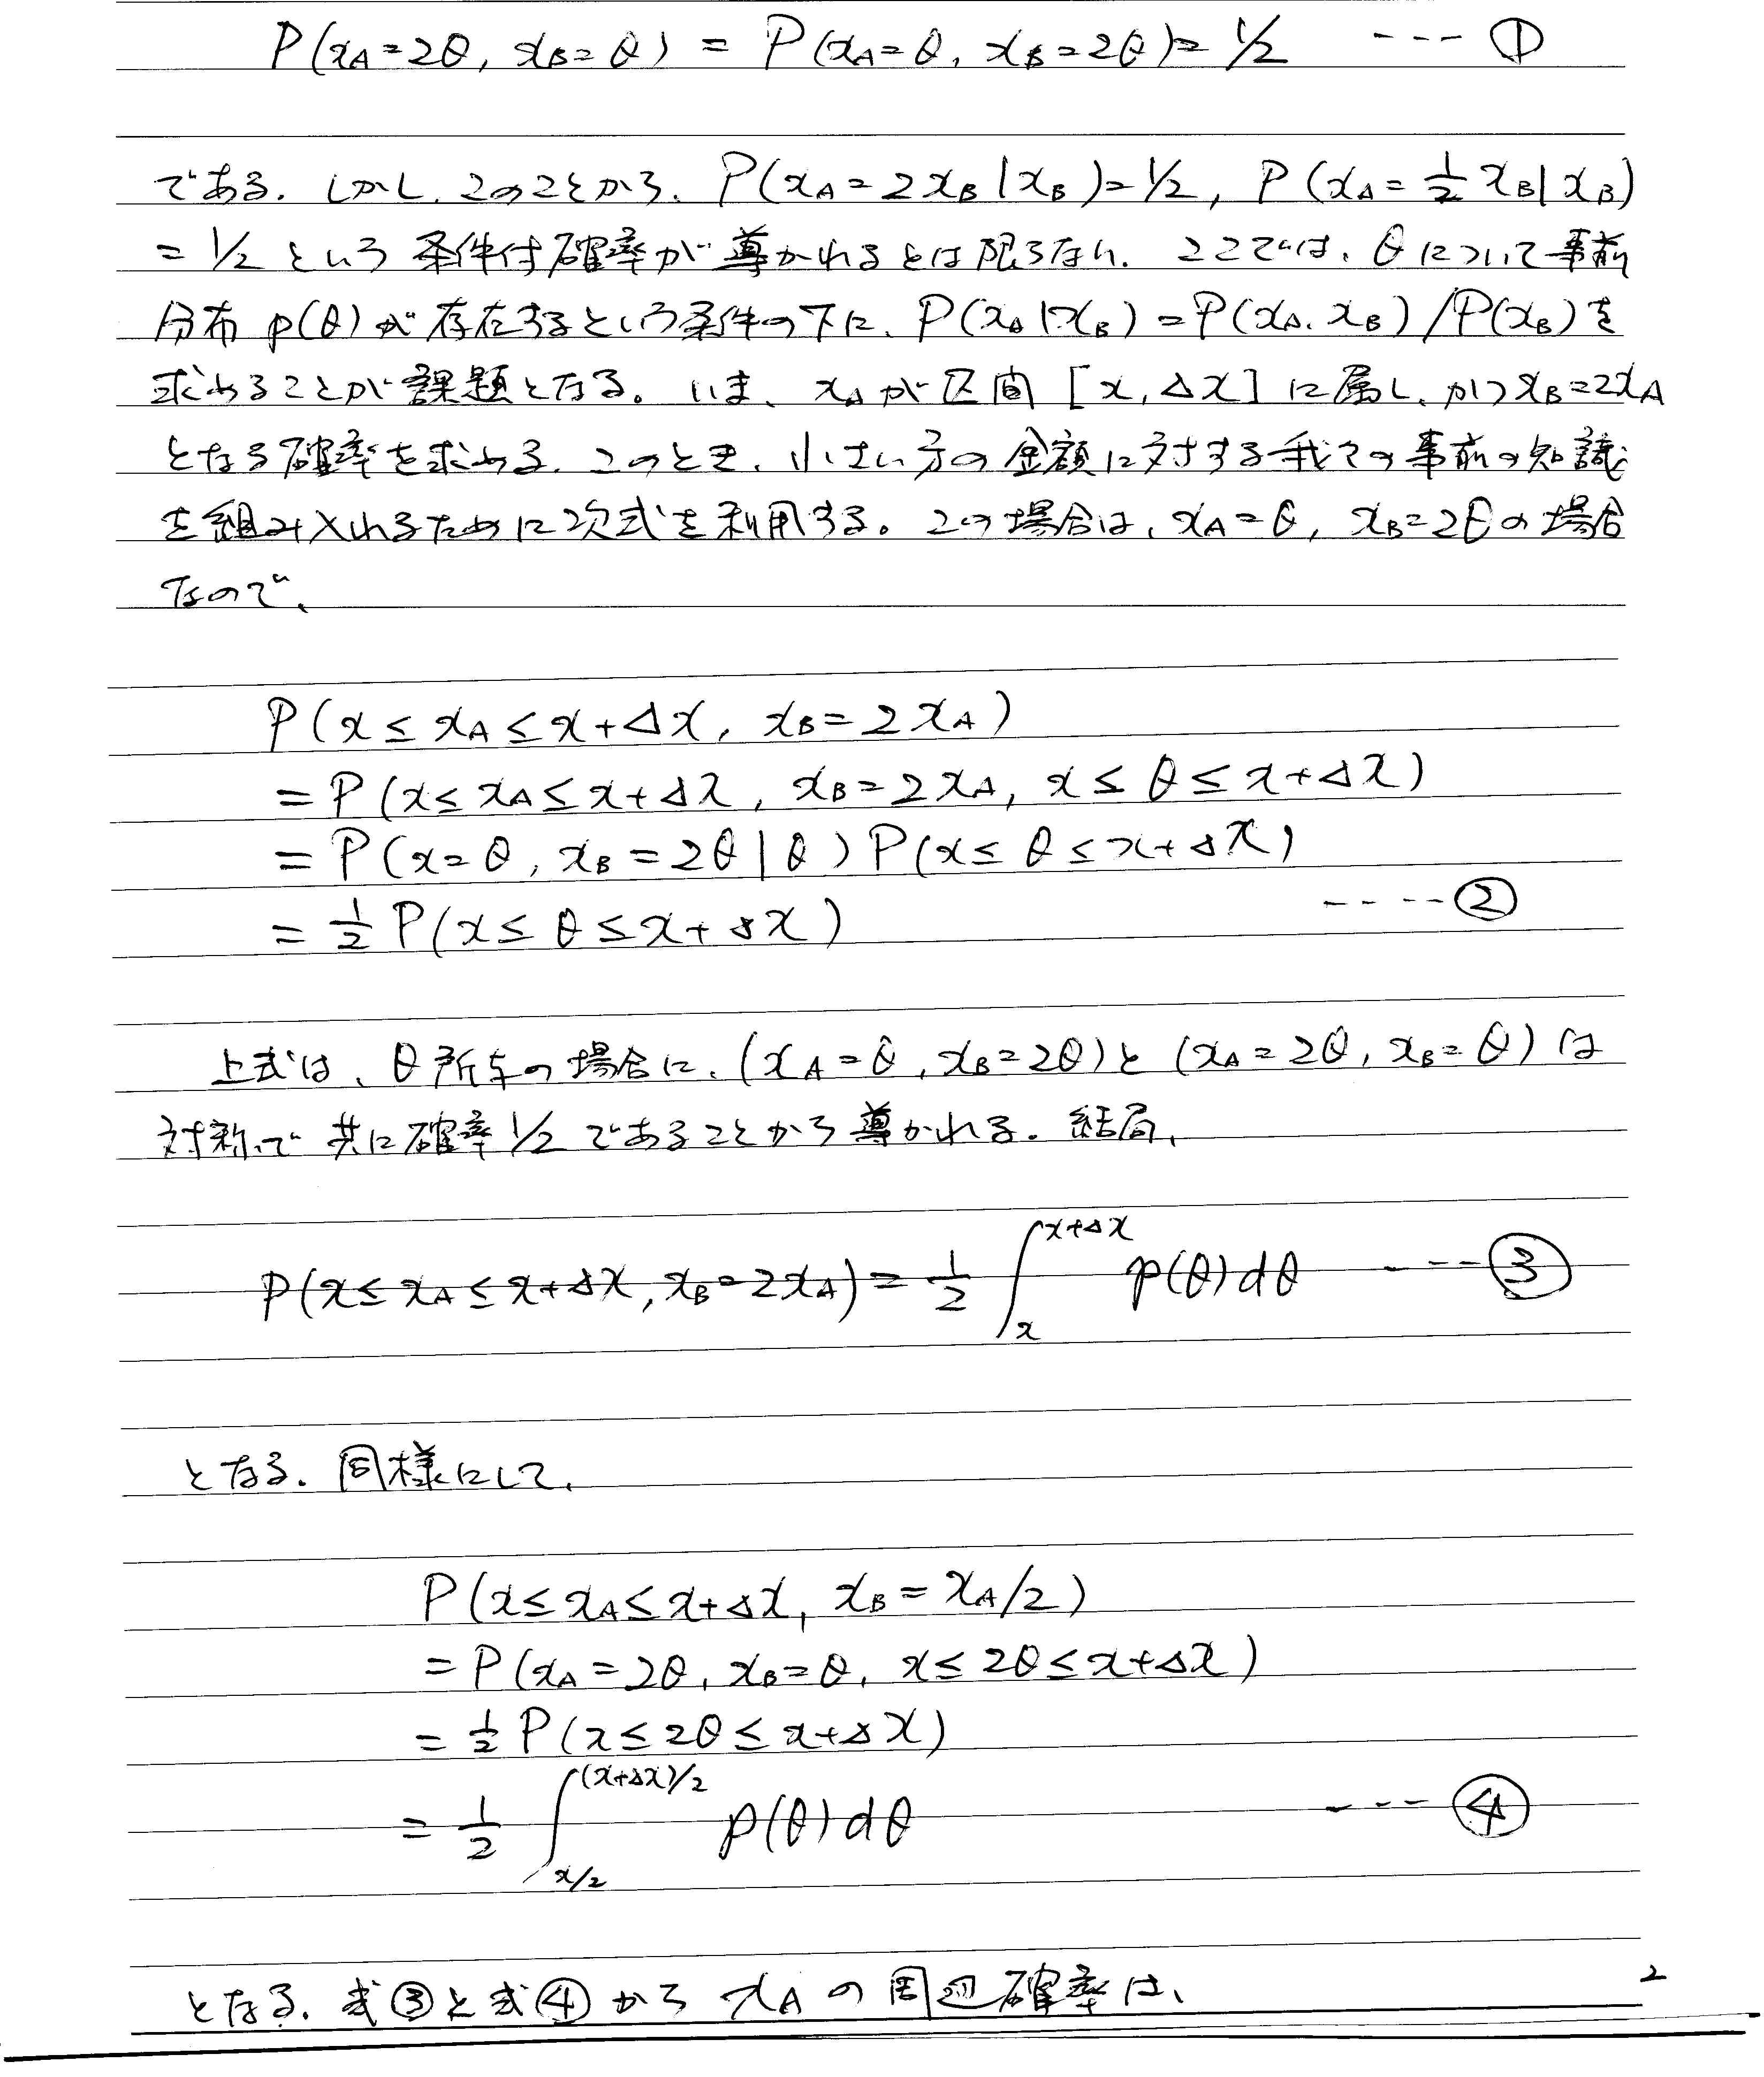 P(xA=2θ, xB=θ) = P(xA=θ, xB=2θ)=1/2 ---- ①
である. しかし, このことから, P(xA=2xB|xB)=1/2, P(xA=1/2 xB|xB)
=1/2 という条件付確率が導かれるとは限らない. ここでは, θについて事前
分布 p(θ)が存在するという条件の下に, P(xA|xB)=P(xA,xB)/P(xB)を
求めることが課題となる。いま、xAが区間[x,Δx]に属し、かつxB=2xA
となる確率を求める. このとき, 小さい方の金額に対する我々の事前の知識
を組み入れるために次式を利用する。この場合は, xA=θ, xB=2θの場合
なので、
P(x≤xA≤x+Δx, xB=2xA)
=P(x≤xA≤x+Δx, xB=2xA, x≤θ≤x+Δx)
=P(x=θ, xB=2θ|θ)P(x≤θ≤x+Δx)
=1/2 P(x≤θ≤x+Δx) ----②
上式は、θ所与の場合に、(xA=θ, xB=2θ)と(xA=2θ, xB=θ)は
対称で共に確率1/2であることから導かれる. 結局,
P(x≤xA≤x+Δx, xB=2xA)=1/2 ∫_x^{x+Δx} p(θ)dθ ----③
となる. 同様にして,
P(x≤xA≤x+Δx, xB=xA/2)
=P(xA=2θ, xB=θ, x≤2θ≤x+Δx)
=1/2 P(x≤2θ≤x+Δx)
=1/2 ∫_{x/2}^{(x+Δx)/2} p(θ)dθ ----④
となる. 式③と式④から xAの周辺確率は、
2